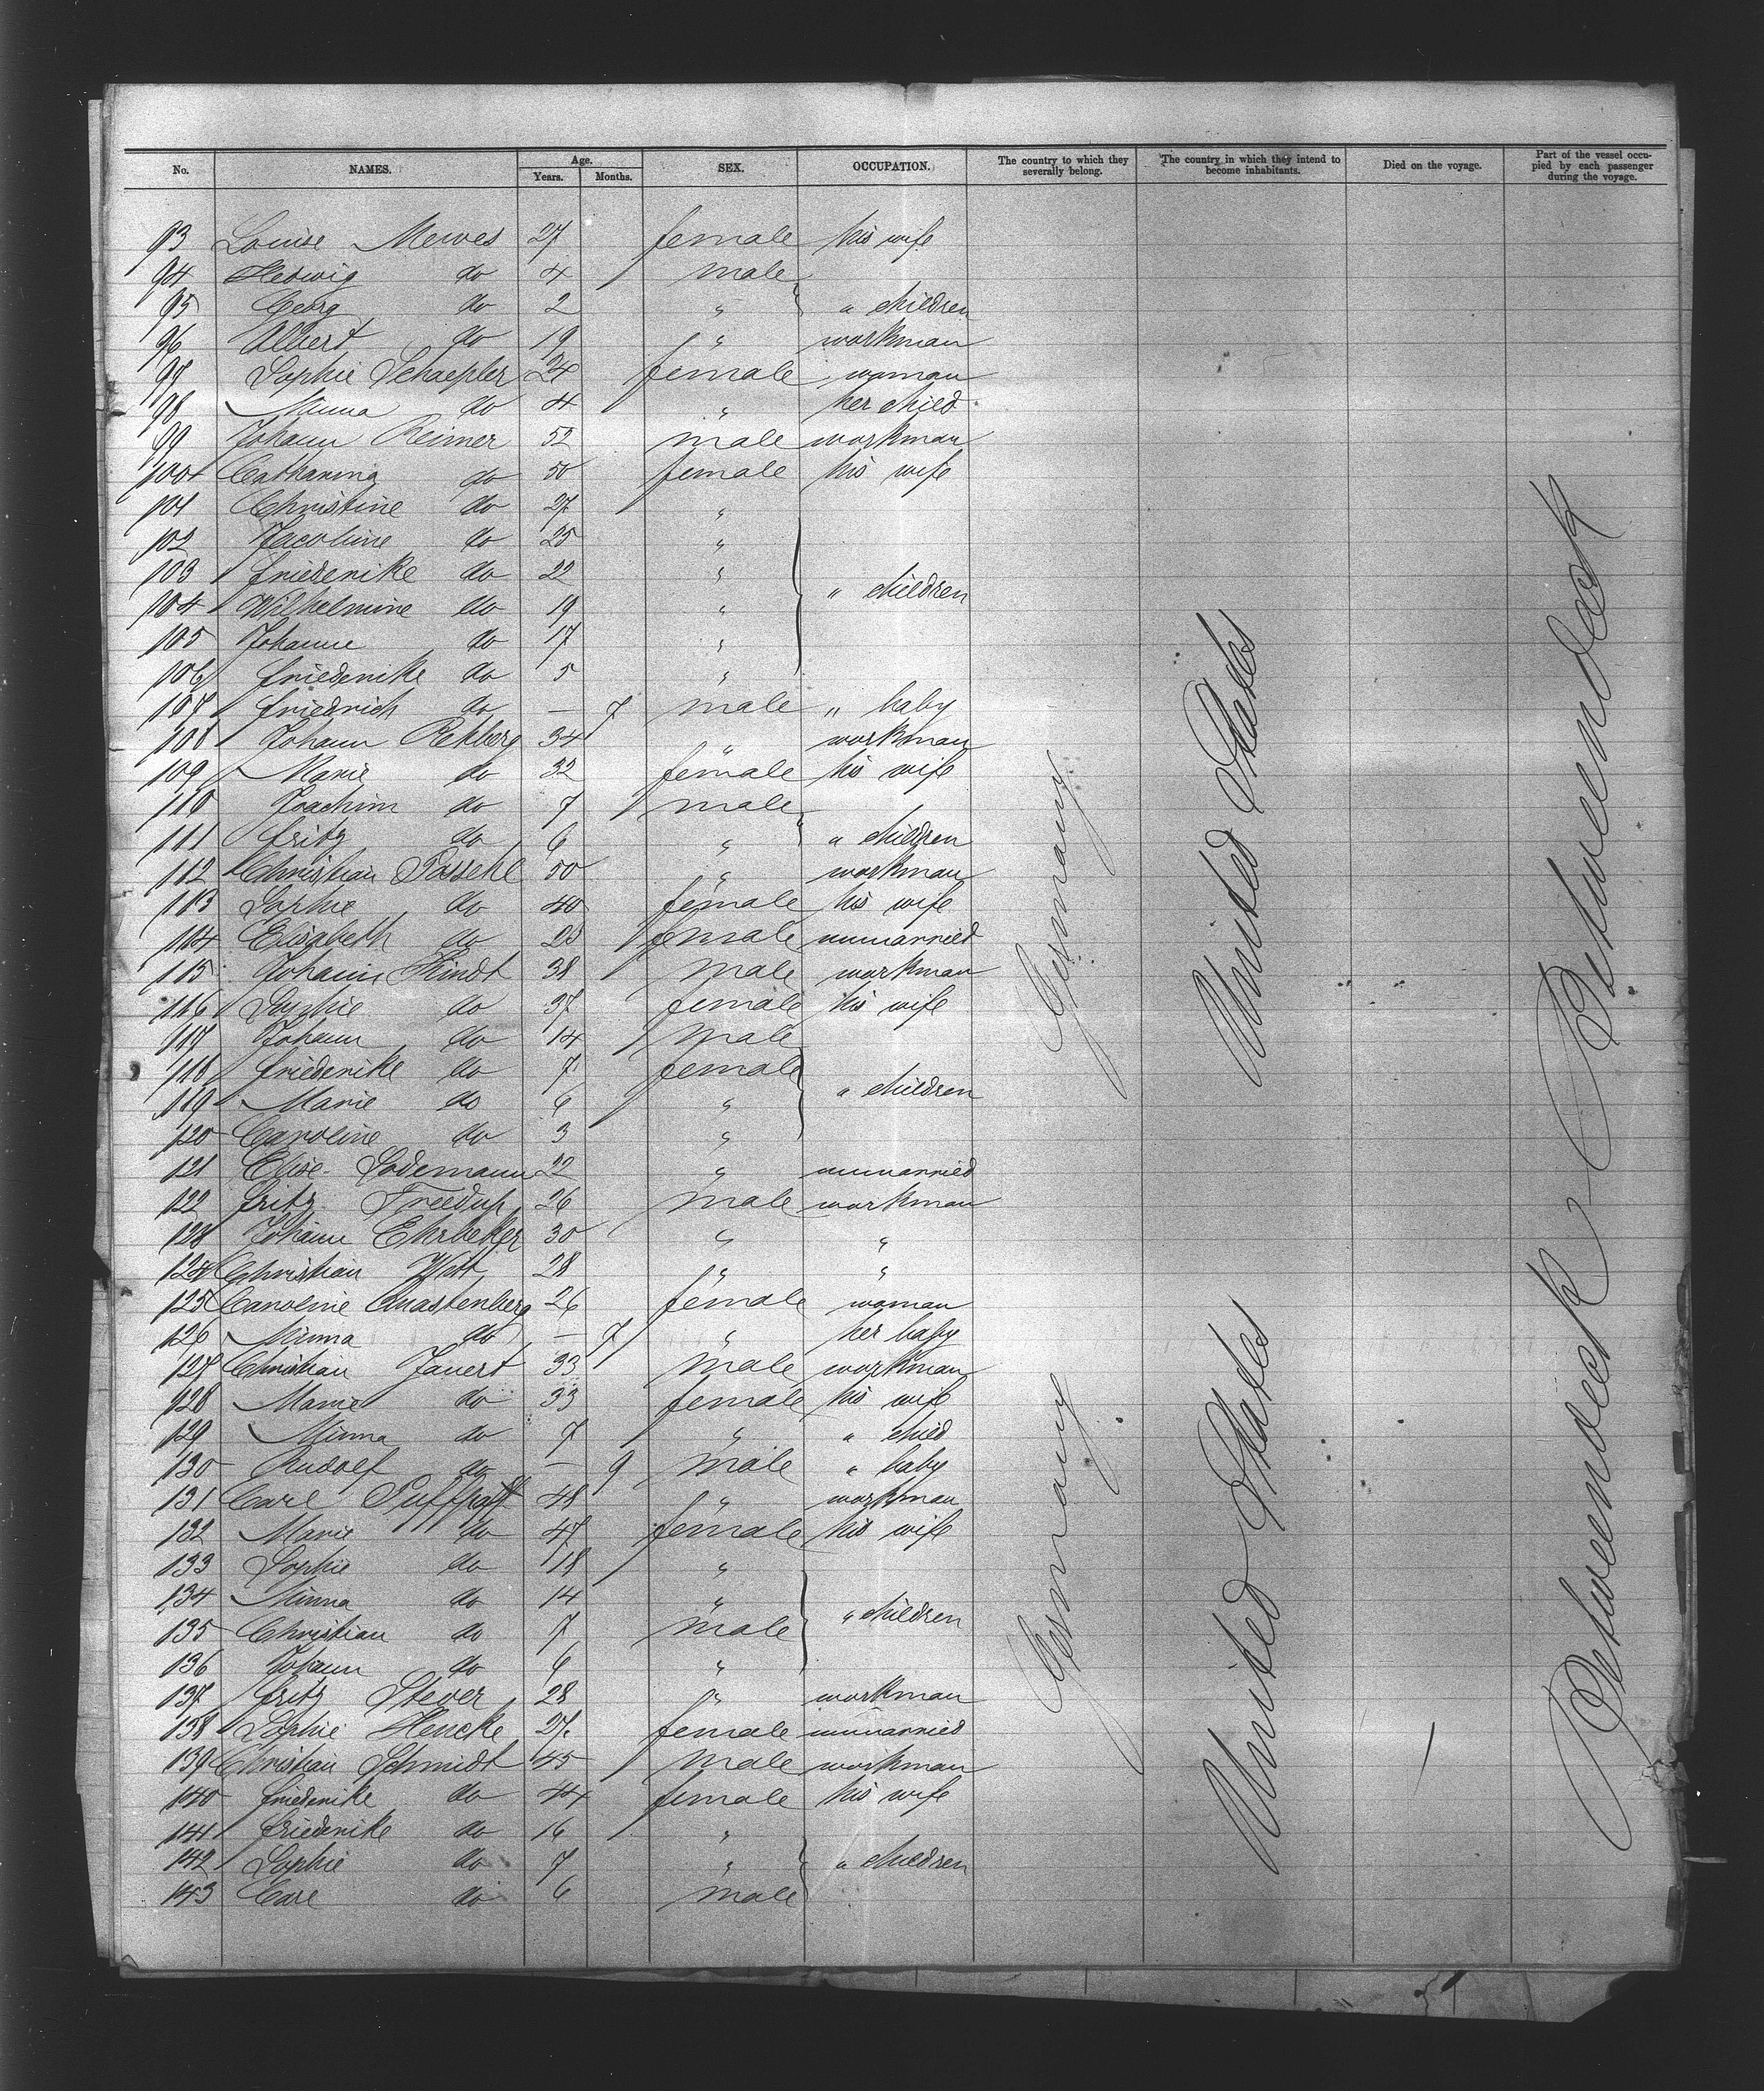 No. NAMES. Age. Years. Months. SEX. OCCUPATION. The country to which they severally belong. The country in which they intend to become inhabitants. Died on the voyage. Part of the vessel occupied by each passenger during the voyage.
93 Louise Mewes 27 female his wife
94 Hedwig do 4 male
95 Georg do 2 " " children
96 Albert do 19 " workman
97 Sophie Schaepler 24 female woman
98 Minna do 4 " her child
99 Johann Reimer 52 male workman
100 Catharina do 50 female his wife
101 Christine do 27 "
102 Jacobine do 25 "
103 Friederike do 22 " " children
104 Wilhelmine do 19 "
105 Johanne do 17 "
106 Friederike do 5 "
107 Friedrich do — 7 male " baby
108 Johann Rehberg 34 " workman
109 Marie do 32 female his wife
110 Joachim do 7 male
111 Fritz do 6 " " children
112 Christian Possehl 50 " workman
113 Sophie do 40 female his wife
114 Elisabeth do female unmarried
115 Johann Hindt 38 male workman
116 Sophie do 37 female his wife
117 Johann do 14 male
118 Friederike do 7 female
119 Marie do 6 " " children
120 Caroline do 3 "
121 Elise Lodemann 22 " unmarried
122 Fritz 26 male workman
123 Johann 30 " "
124 Christian Witt 28 " "
125 Caroline Quastenberg 26 female woman
126 Minna do — 7 " her baby
127 Christian Jauert 33 male workman
128 Marie do 33 female his wife
129 Minna do 7 " " child
130 Rudolf do — 9 male " baby
131 Carl 48 " workman
132 Marie do 47 female his wife
133 Sophie do 18 "
134 Minna do 14 " " children
135 Christian do 7 male
136 Johann do 6 "
137 Fritz Stever 28 " workman
138 Sophie Hencke 27 female unmarried
139 Christian Schmidt 45 male workman
140 Friederike do 44 female his wife
141 Friederike do 16 "
142 Sophie do 7 " " children
143 Carl do 6 male
Germany
Germany
United States
United States
Betweendeck
Betweendeck